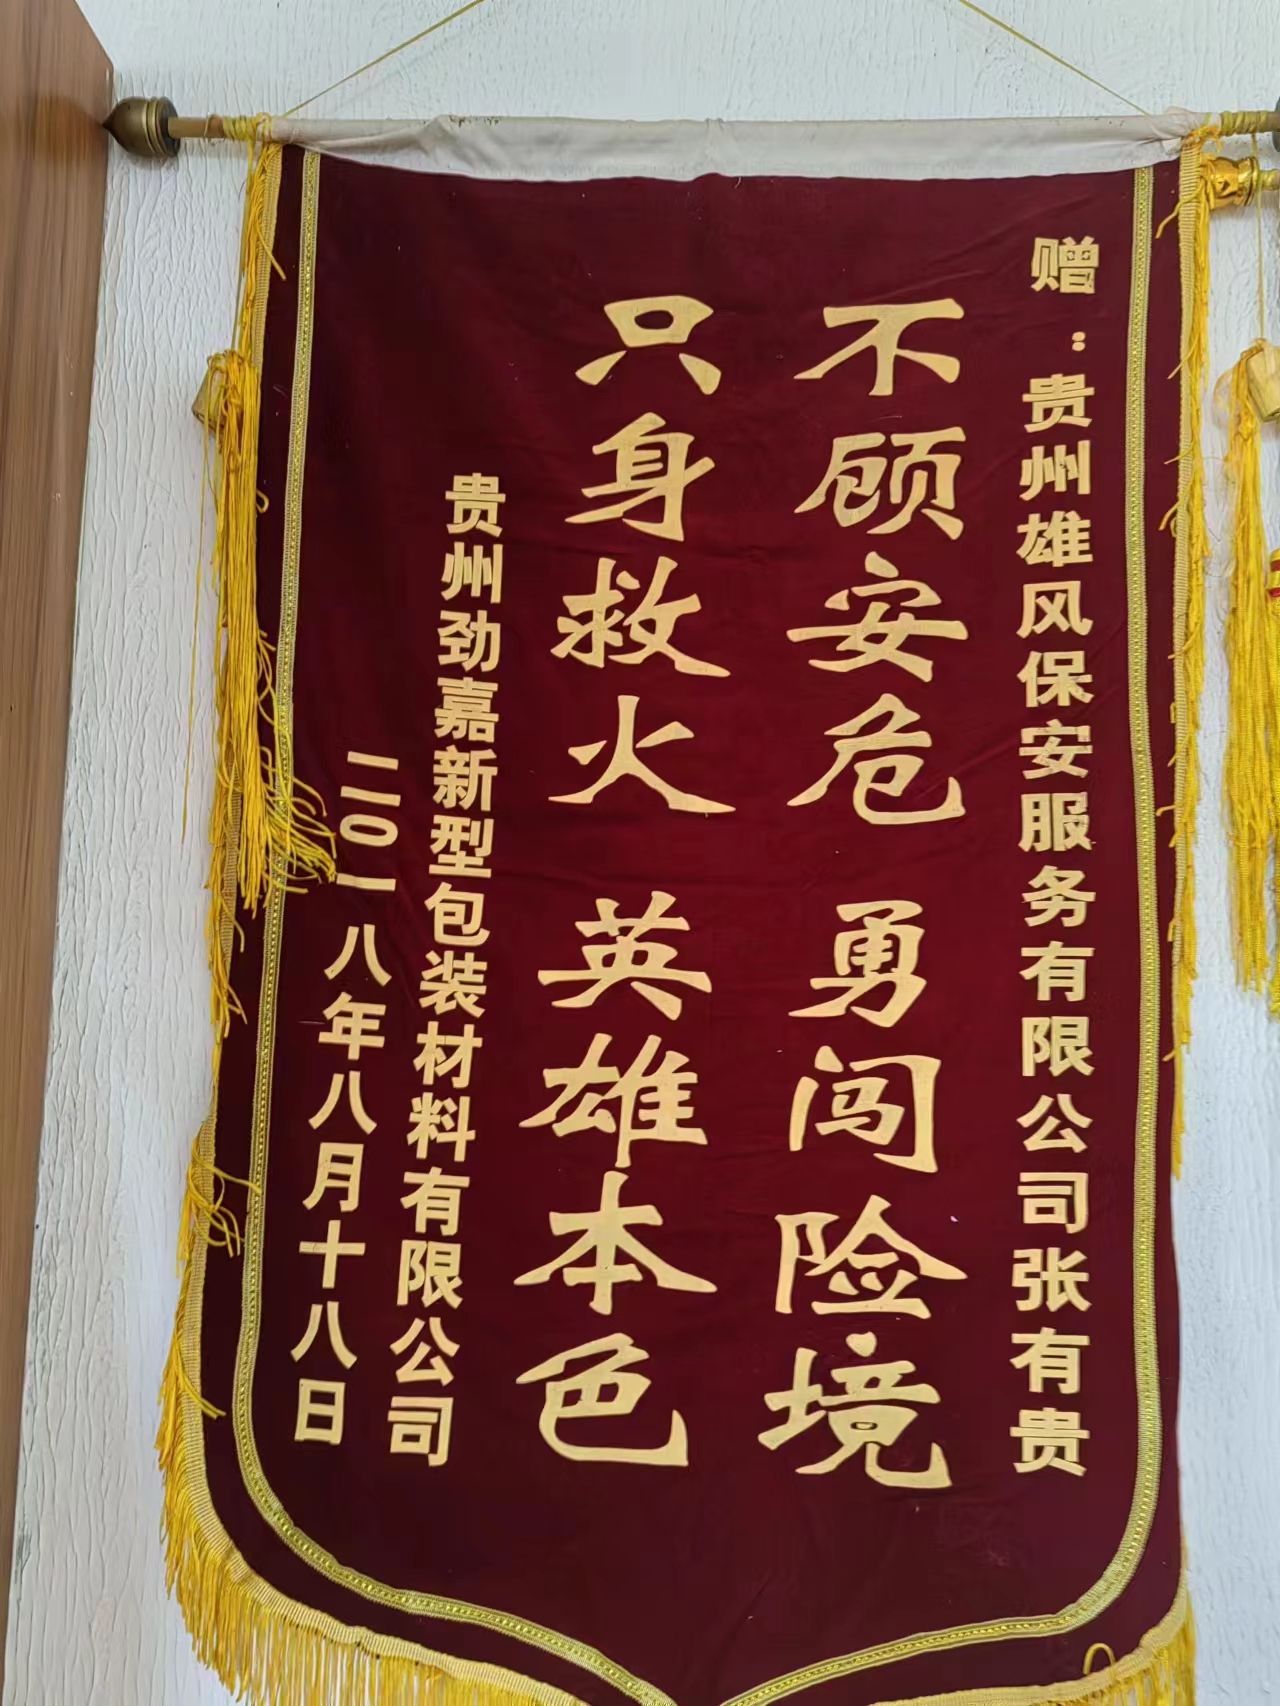 赠：贵州雄风保安服务有限公司张有贵
不顾安危 勇闯险境
只身救火 英雄本色
贵州劲嘉新型包装材料有限公司
二〇一八年八月十八日